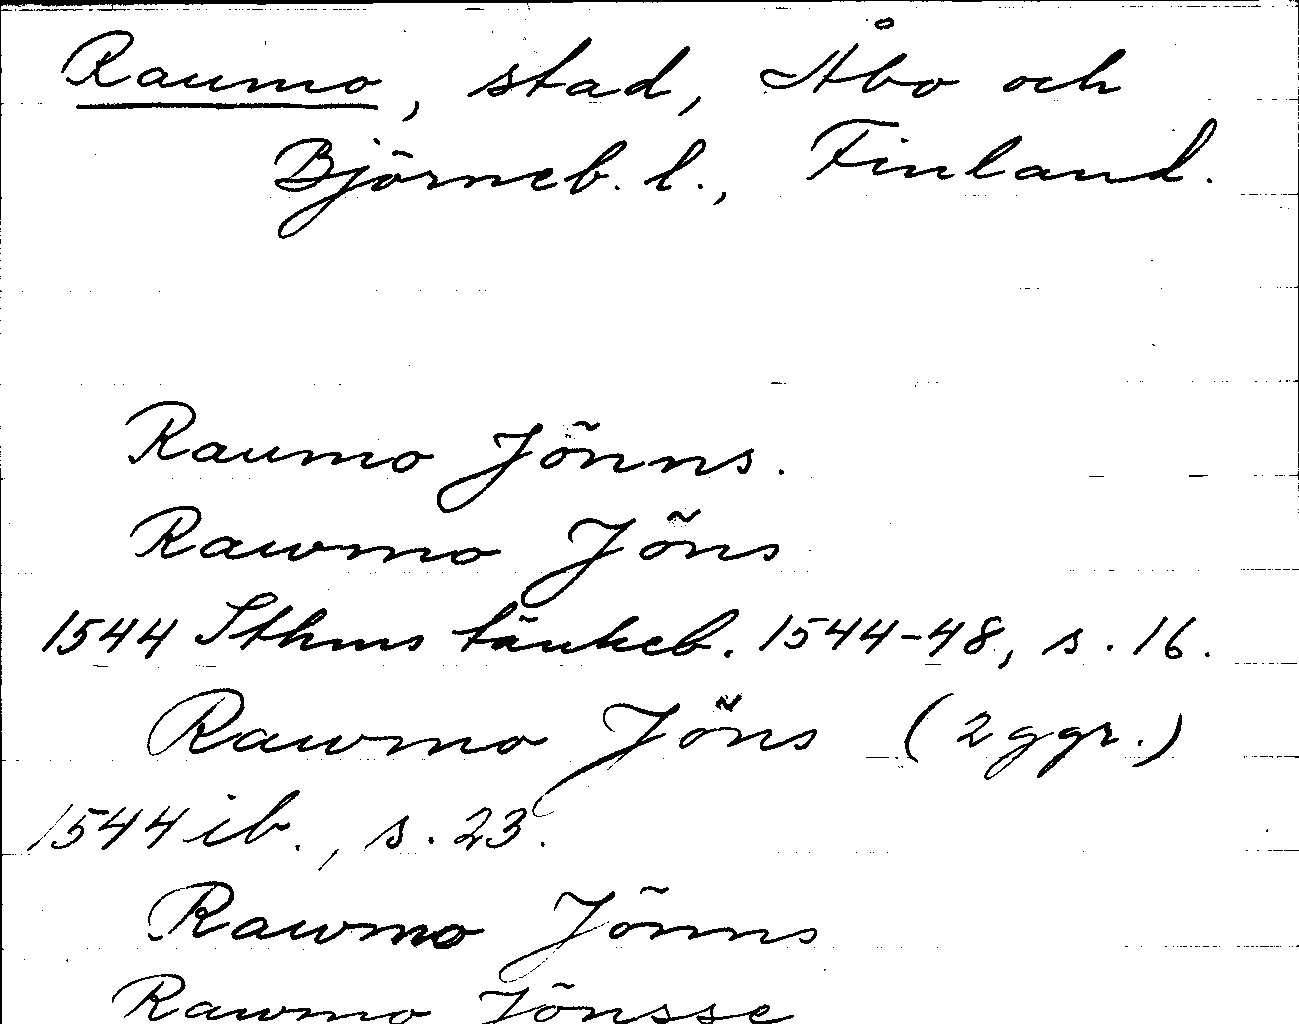 Raumo, stad, Åbo och
Björneb. l., Finland.
Raumo Jönns.
Rawmo Jöns
1544 Sthms tänkeb. 1544-48, s. 16.
Rawmo Jöns (2 ggr.)
1544 ib., s. 23.
Rawmo Jönns
Rawmo Jönsse